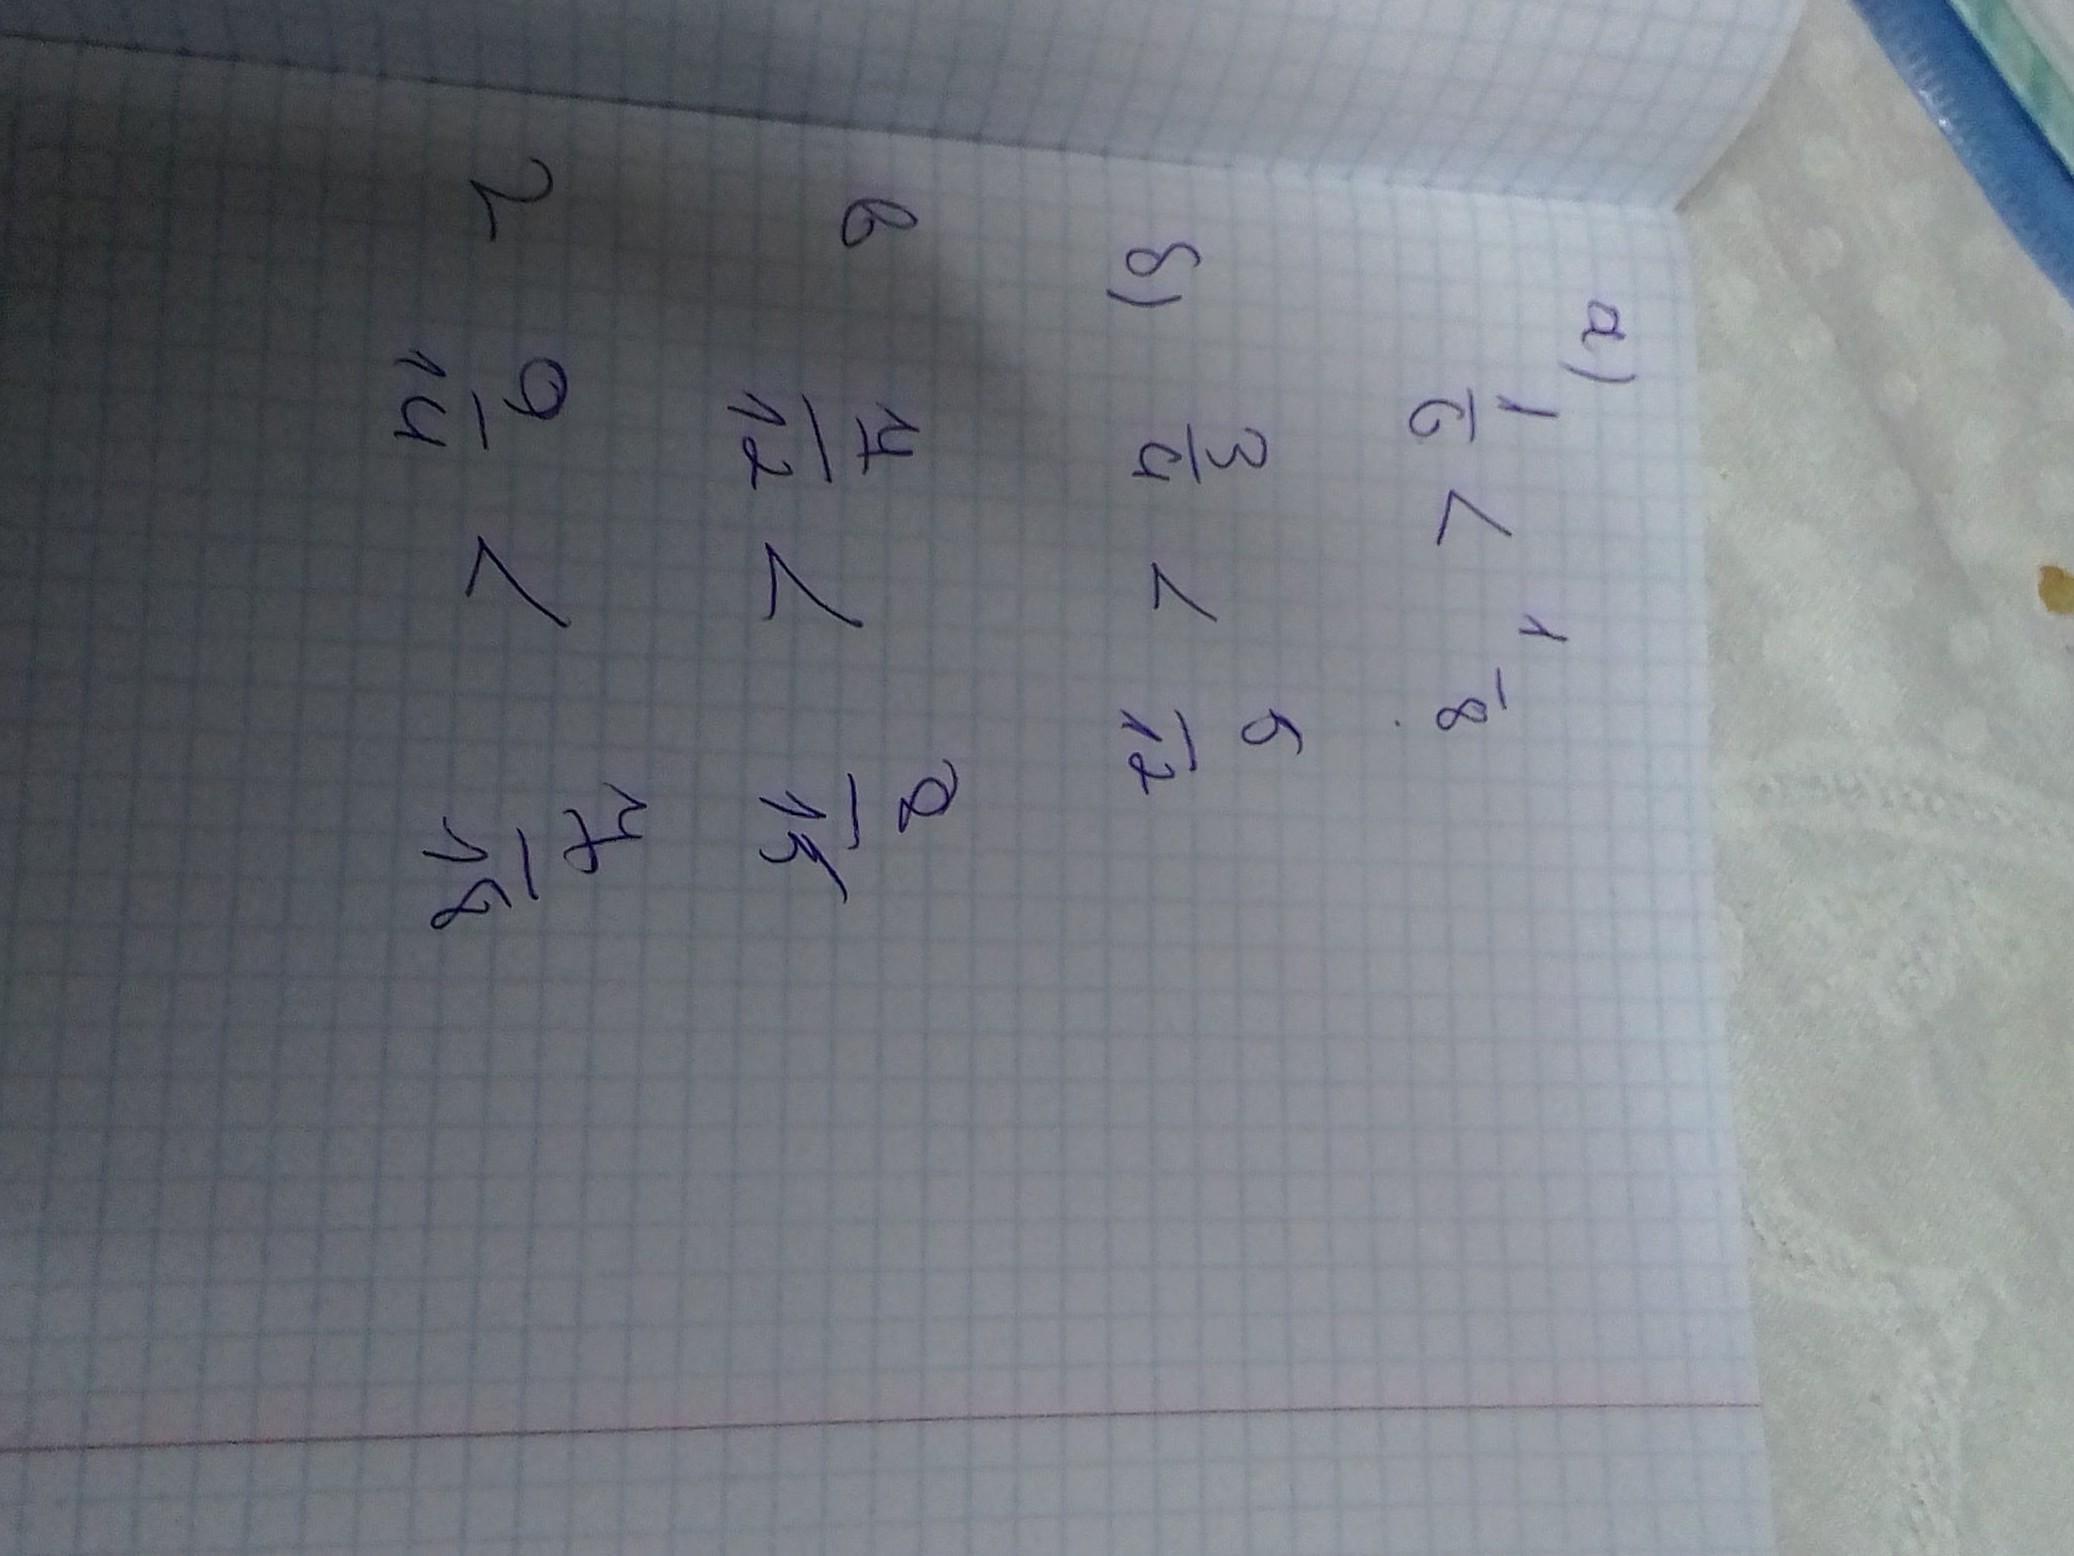 а) 1/6 < 1/8
б) 3/4 < 5/12
в 7/12 < 8/15
г 9/14 < 7/18